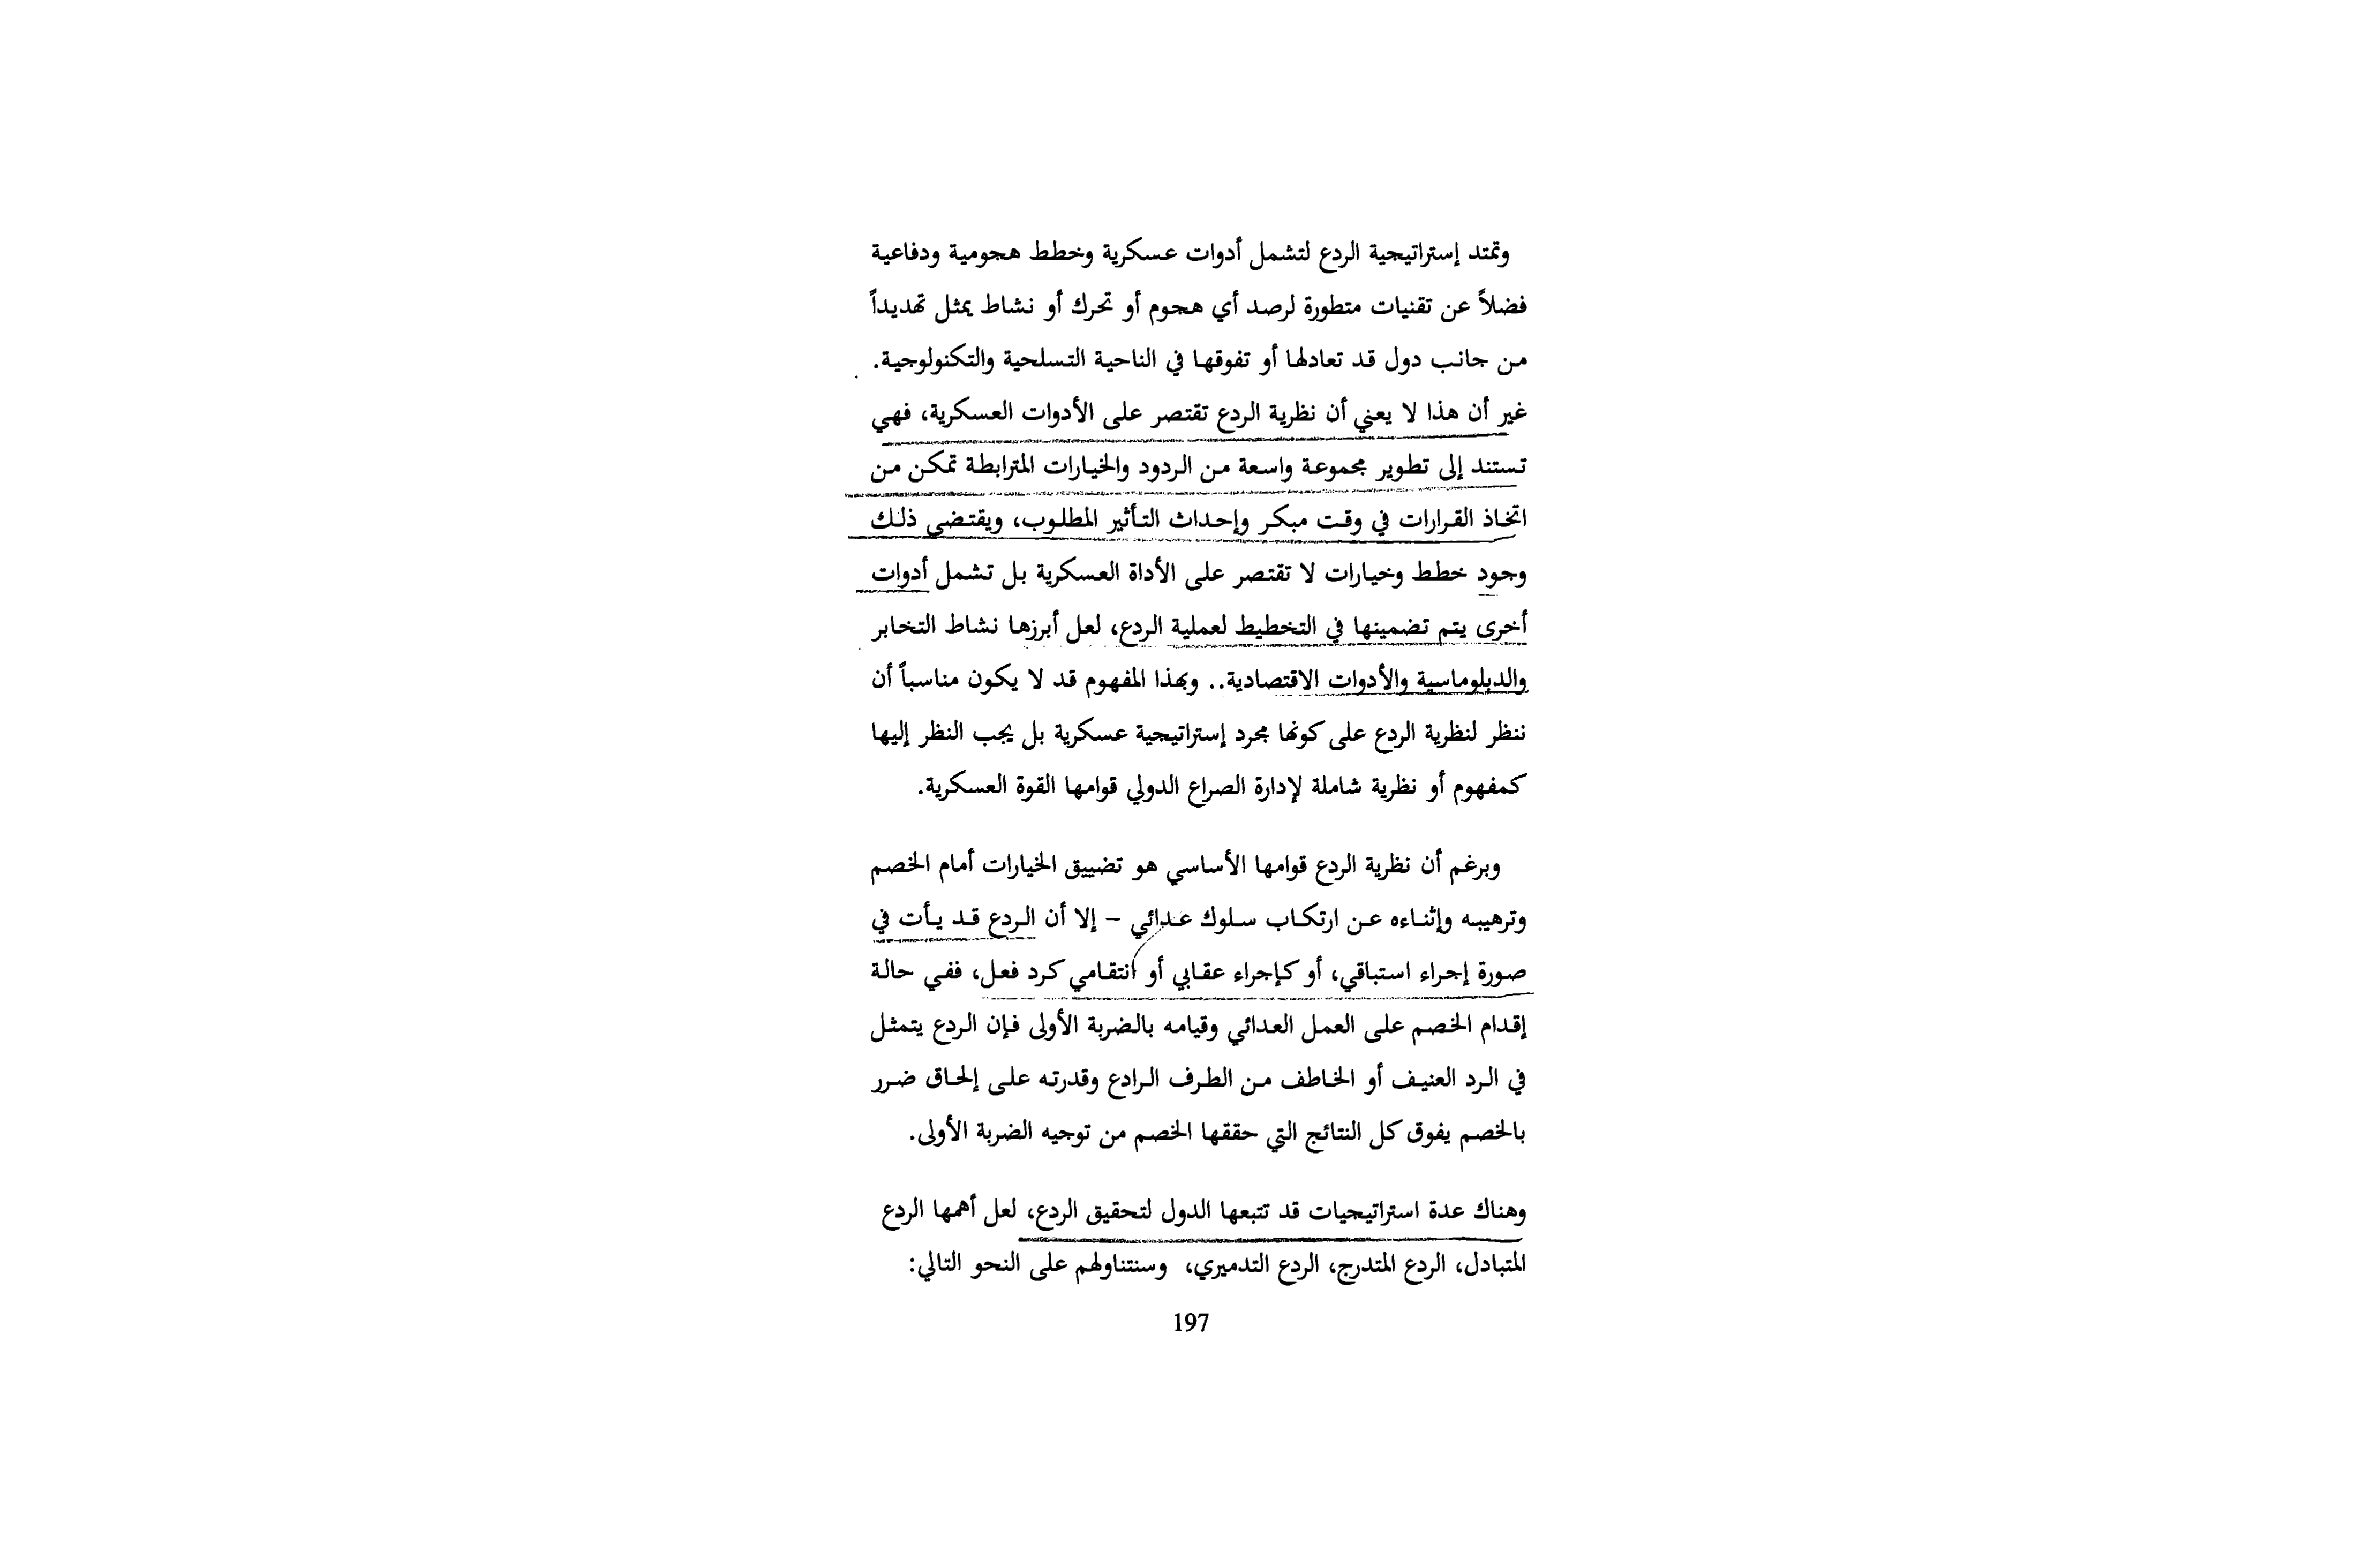 وتمتد إستراتيجية الردع لتشمل أدوات عسكرية وخطط هجومية ودفاعية
فضلاً عن تقنيات متطورة لرصد أي هجوم أو تحرك أو نشاط يمثل تهديداً
من جانب دول قد تعادلها أو تفوقها في الناحية التسلحية والتكنولوجية.
غير أن هذا لا يعني أن نظرية الردع تقتصر على الأدوات العسكرية، فهي
تستند إلى تطوير مجموعة واسعة من الردود والخيارات المترابطة تمكن من
اتخاذ القرارات في وقت مبكر وإحداث التأثير المطلوب، ويقتضي ذلك
وجود خطط وخيارات لا تقتصر على الأداة العسكرية بل تشمل أدوات
أخرى يتم تضمينها في التخطيط لعملية الردع، لعل أبرزها نشاط التخابر
والدبلوماسية والأدوات الاقتصادية.. وبهذا المفهوم قد لا يكون مناسباً أن
ننظر لنظرية الردع على كونها مجرد إستراتيجية عسكرية بل يجب النظر إليها
كمفهوم أو نظرية شاملة لإدارة الصراع الدولي قوامها القوة العسكرية.
وبرغم أن نظرية الردع قوامها الأساسي هو تضييق الخيارات أمام الخصم
وترهيبه وإثناءه عن ارتكاب سلوك عدائي – إلا أن الردع قد يأت في
صورة إجراء استباقي، أو كإجراء عقابي أو انتقامي كرد فعل، ففي حالة
إقدام الخصم على العمل العدائي وقيامه بالضربة الأولى فإن الردع يتمثل
في الرد العنيف أو الخاطف من الطرف الرادع وقدرته على إلحاق ضرر
بالخصم يفوق كل النتائج التي حققها الخصم من توجيه الضربة الأولى.
وهناك عدة استراتيجيات قد تتبعها الدول لتحقيق الردع، لعل أهمها الردع
المتبادل، الردع المتدرج، الردع التدميري، وسنتناولهم على النحو التالي:
197